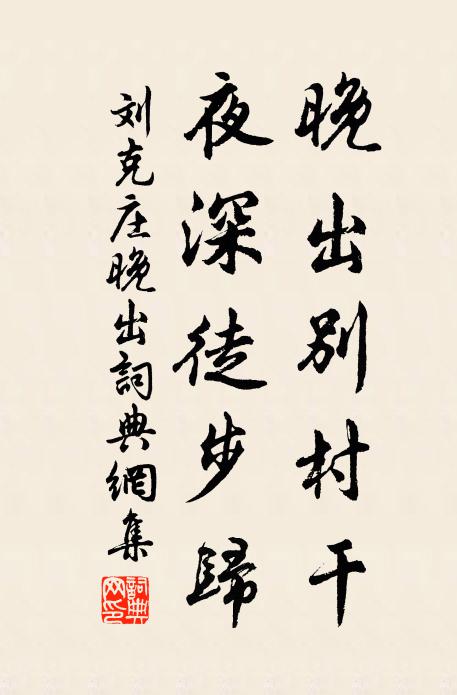 晚出别村干
夜深徒步歸
刘克庄晚出詞典網集
詞典网印